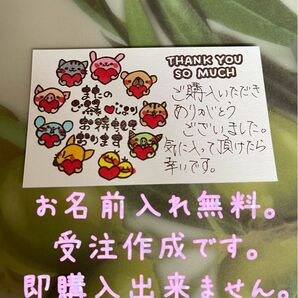 THANK YOU
SO MUCH
またの
ご縁心より
お待ちして
おります
ご購入いただき
ありがとう
ございました。
気に入って頂けたら
幸いです。
お名前入れ無料。
受注作成です。
即購入出来ません。